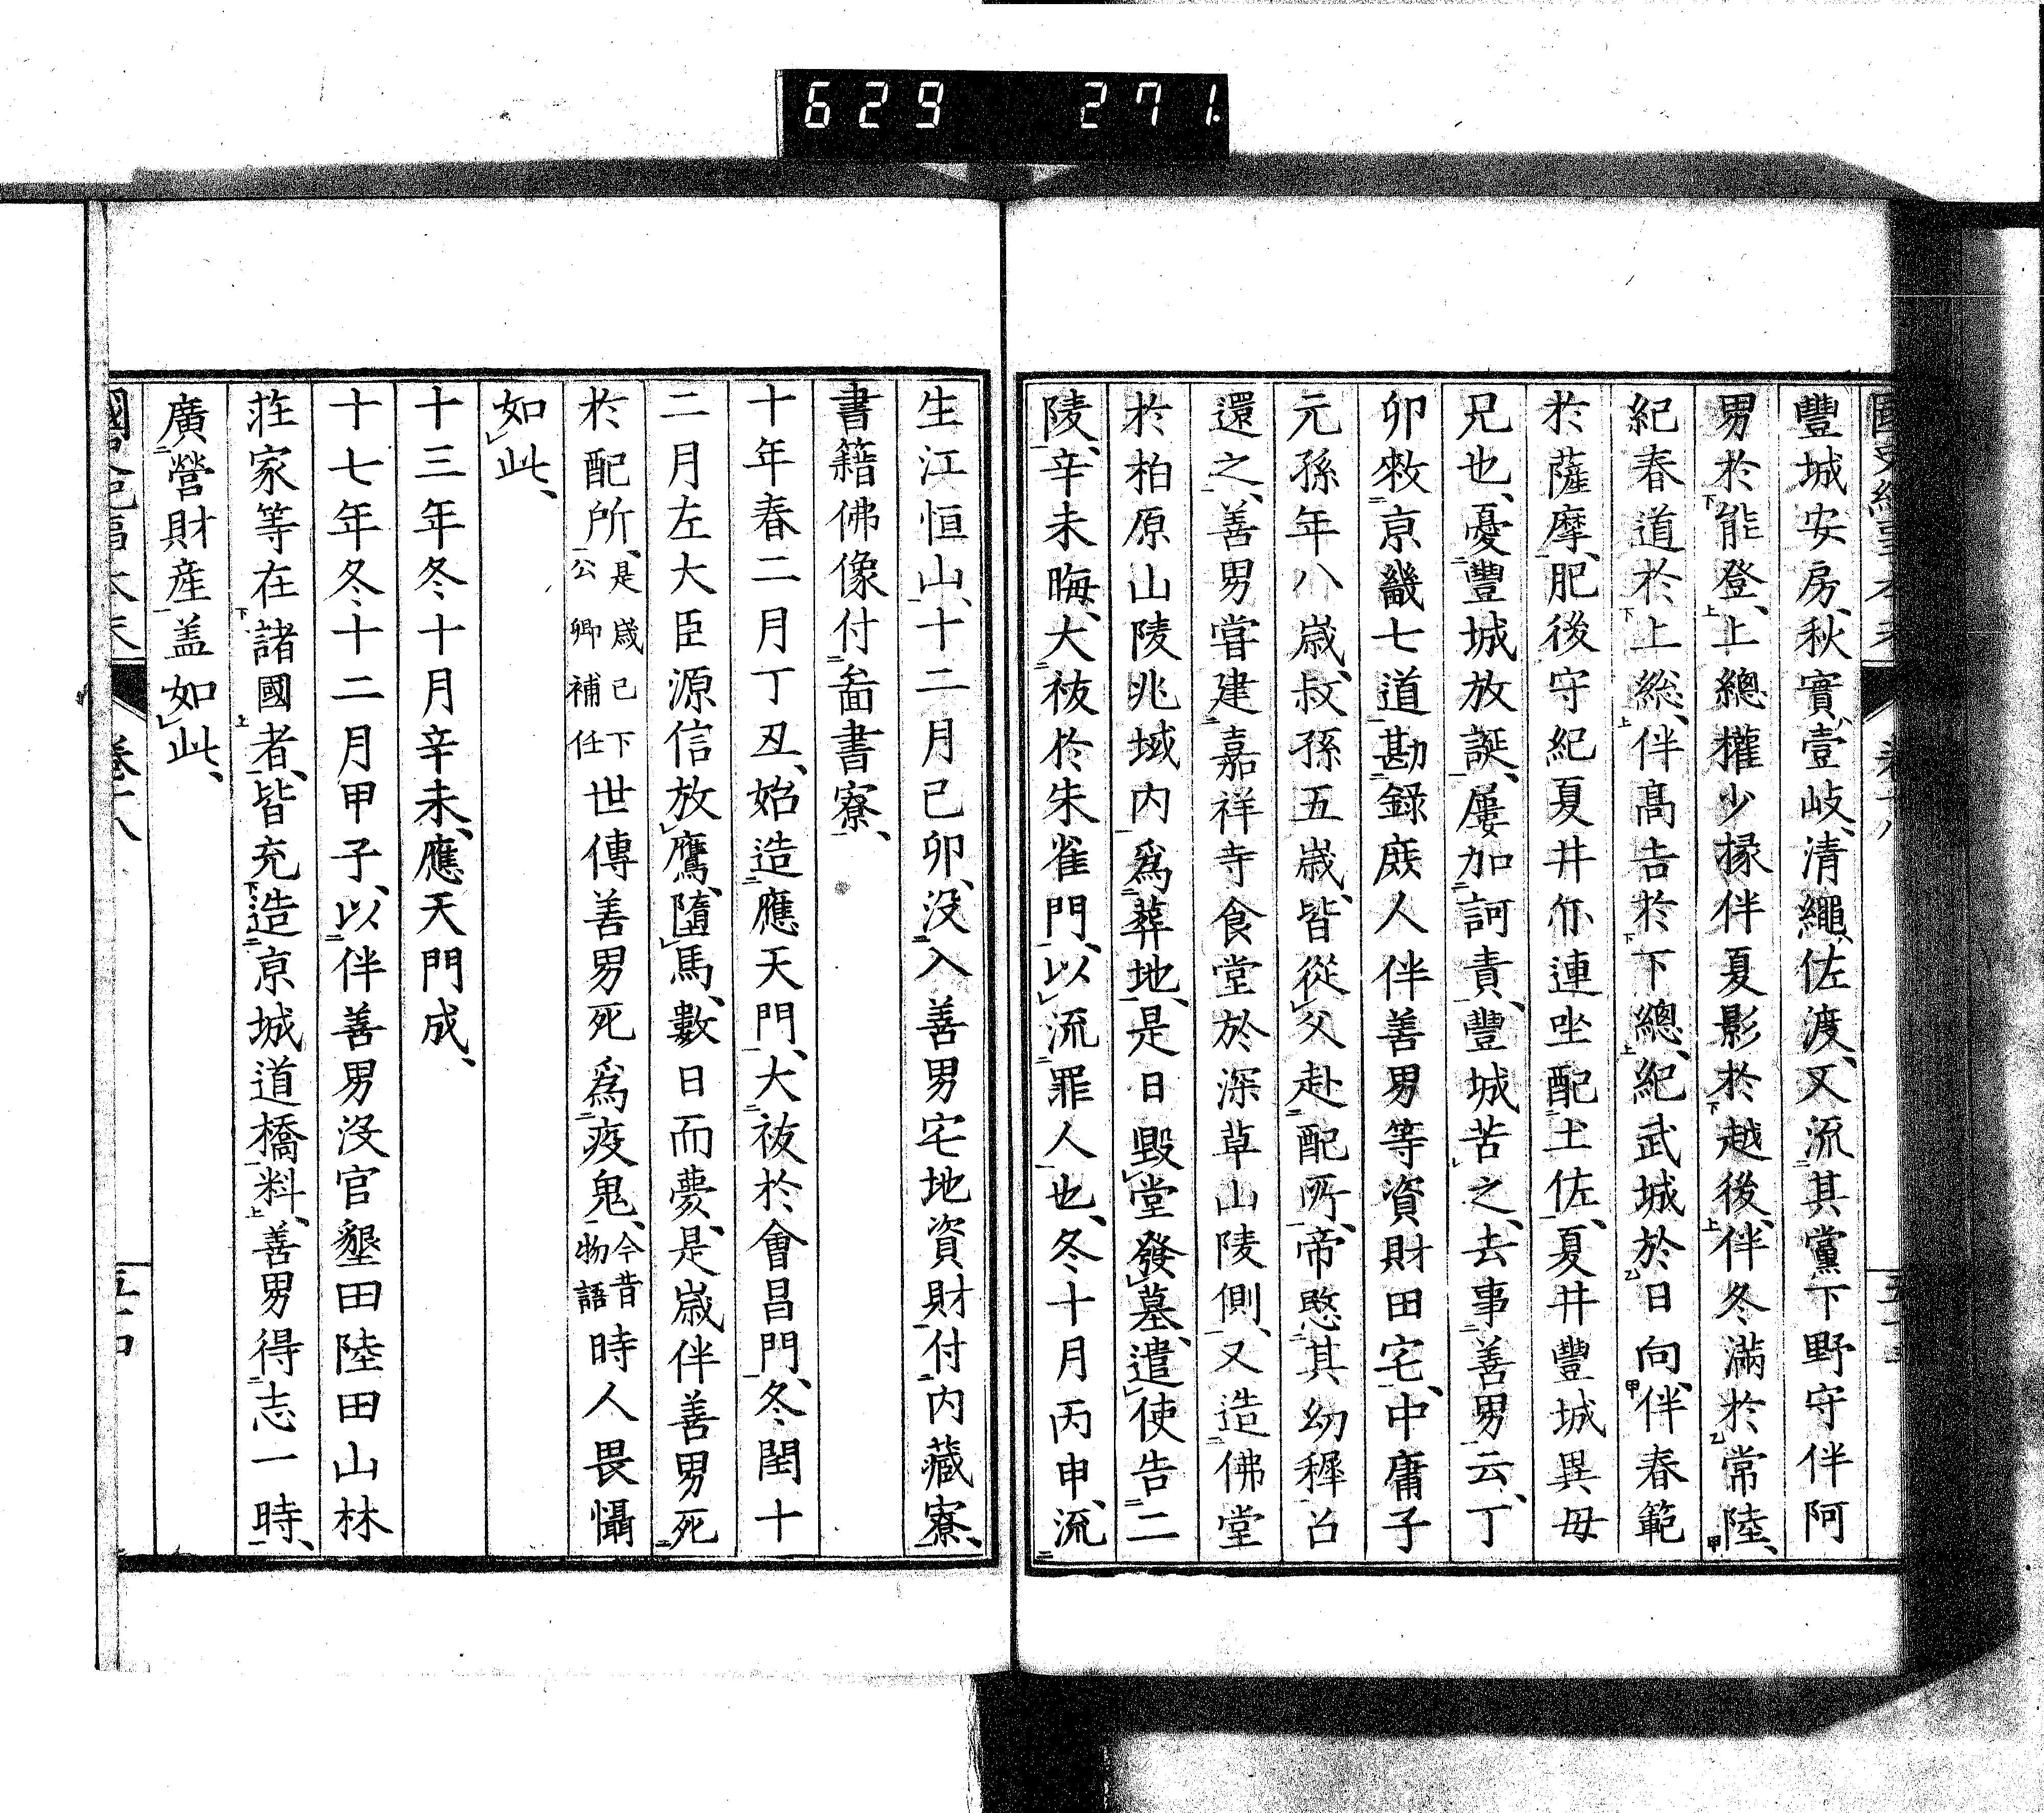 629 271.
豐城安房、秋實壹岐、清繩佐渡、又流其黨下野守伴阿
男於能登、上總權少掾伴夏影於越後、伴冬滿於常陸、
紀春道於上総、伴高吉於下總、紀武城於日向、伴春範
於薩摩、肥後守紀夏井亦連坐配土佐、夏井豐城異母
兄也、憂豐城放誕、屢加訶責、豐城苦之、去事善男云、丁
卯敕京畿七道勘錄庶人伴善男等資財田宅、中庸子
元孫年八歳、叔孫五歳、皆從父赴配所、帝愍其幼穉召
還之、善男嘗建嘉祥寺食堂於深草山陵側、又造佛堂
於柏原山陵兆域内、爲葬地、是日毀堂發墓、遣使告二
陵、辛未晦、大祓於朱雀門、以流罪人也、冬十月丙申、流
生江恒山、十二月己卯、沒入善男宅地資財付内藏寮、
書籍佛像付啚書寮、
十年春二月丁丑、始造應天門、大祓於會昌門、冬閏十
二月左大臣源信放鷹、墮馬、數日而薨、是歳伴善男死
於配所、是歳已下公卿補任世傳善男死爲疫鬼、今昔物語時人畏懾
如此、
十三年冬十月辛未、應天門成、
十七年冬十二月甲子、以伴善男沒官墾田陸田山林
荘家等在諸國者、皆充造京城道橋料、善男得志一時、
廣營財産、盖如此、